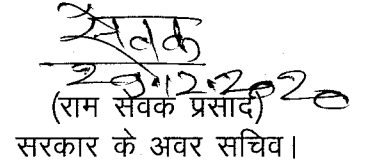 सेवक
29.12.2020
(राम सेवक प्रसाद)
सरकार के अवर सचिव।